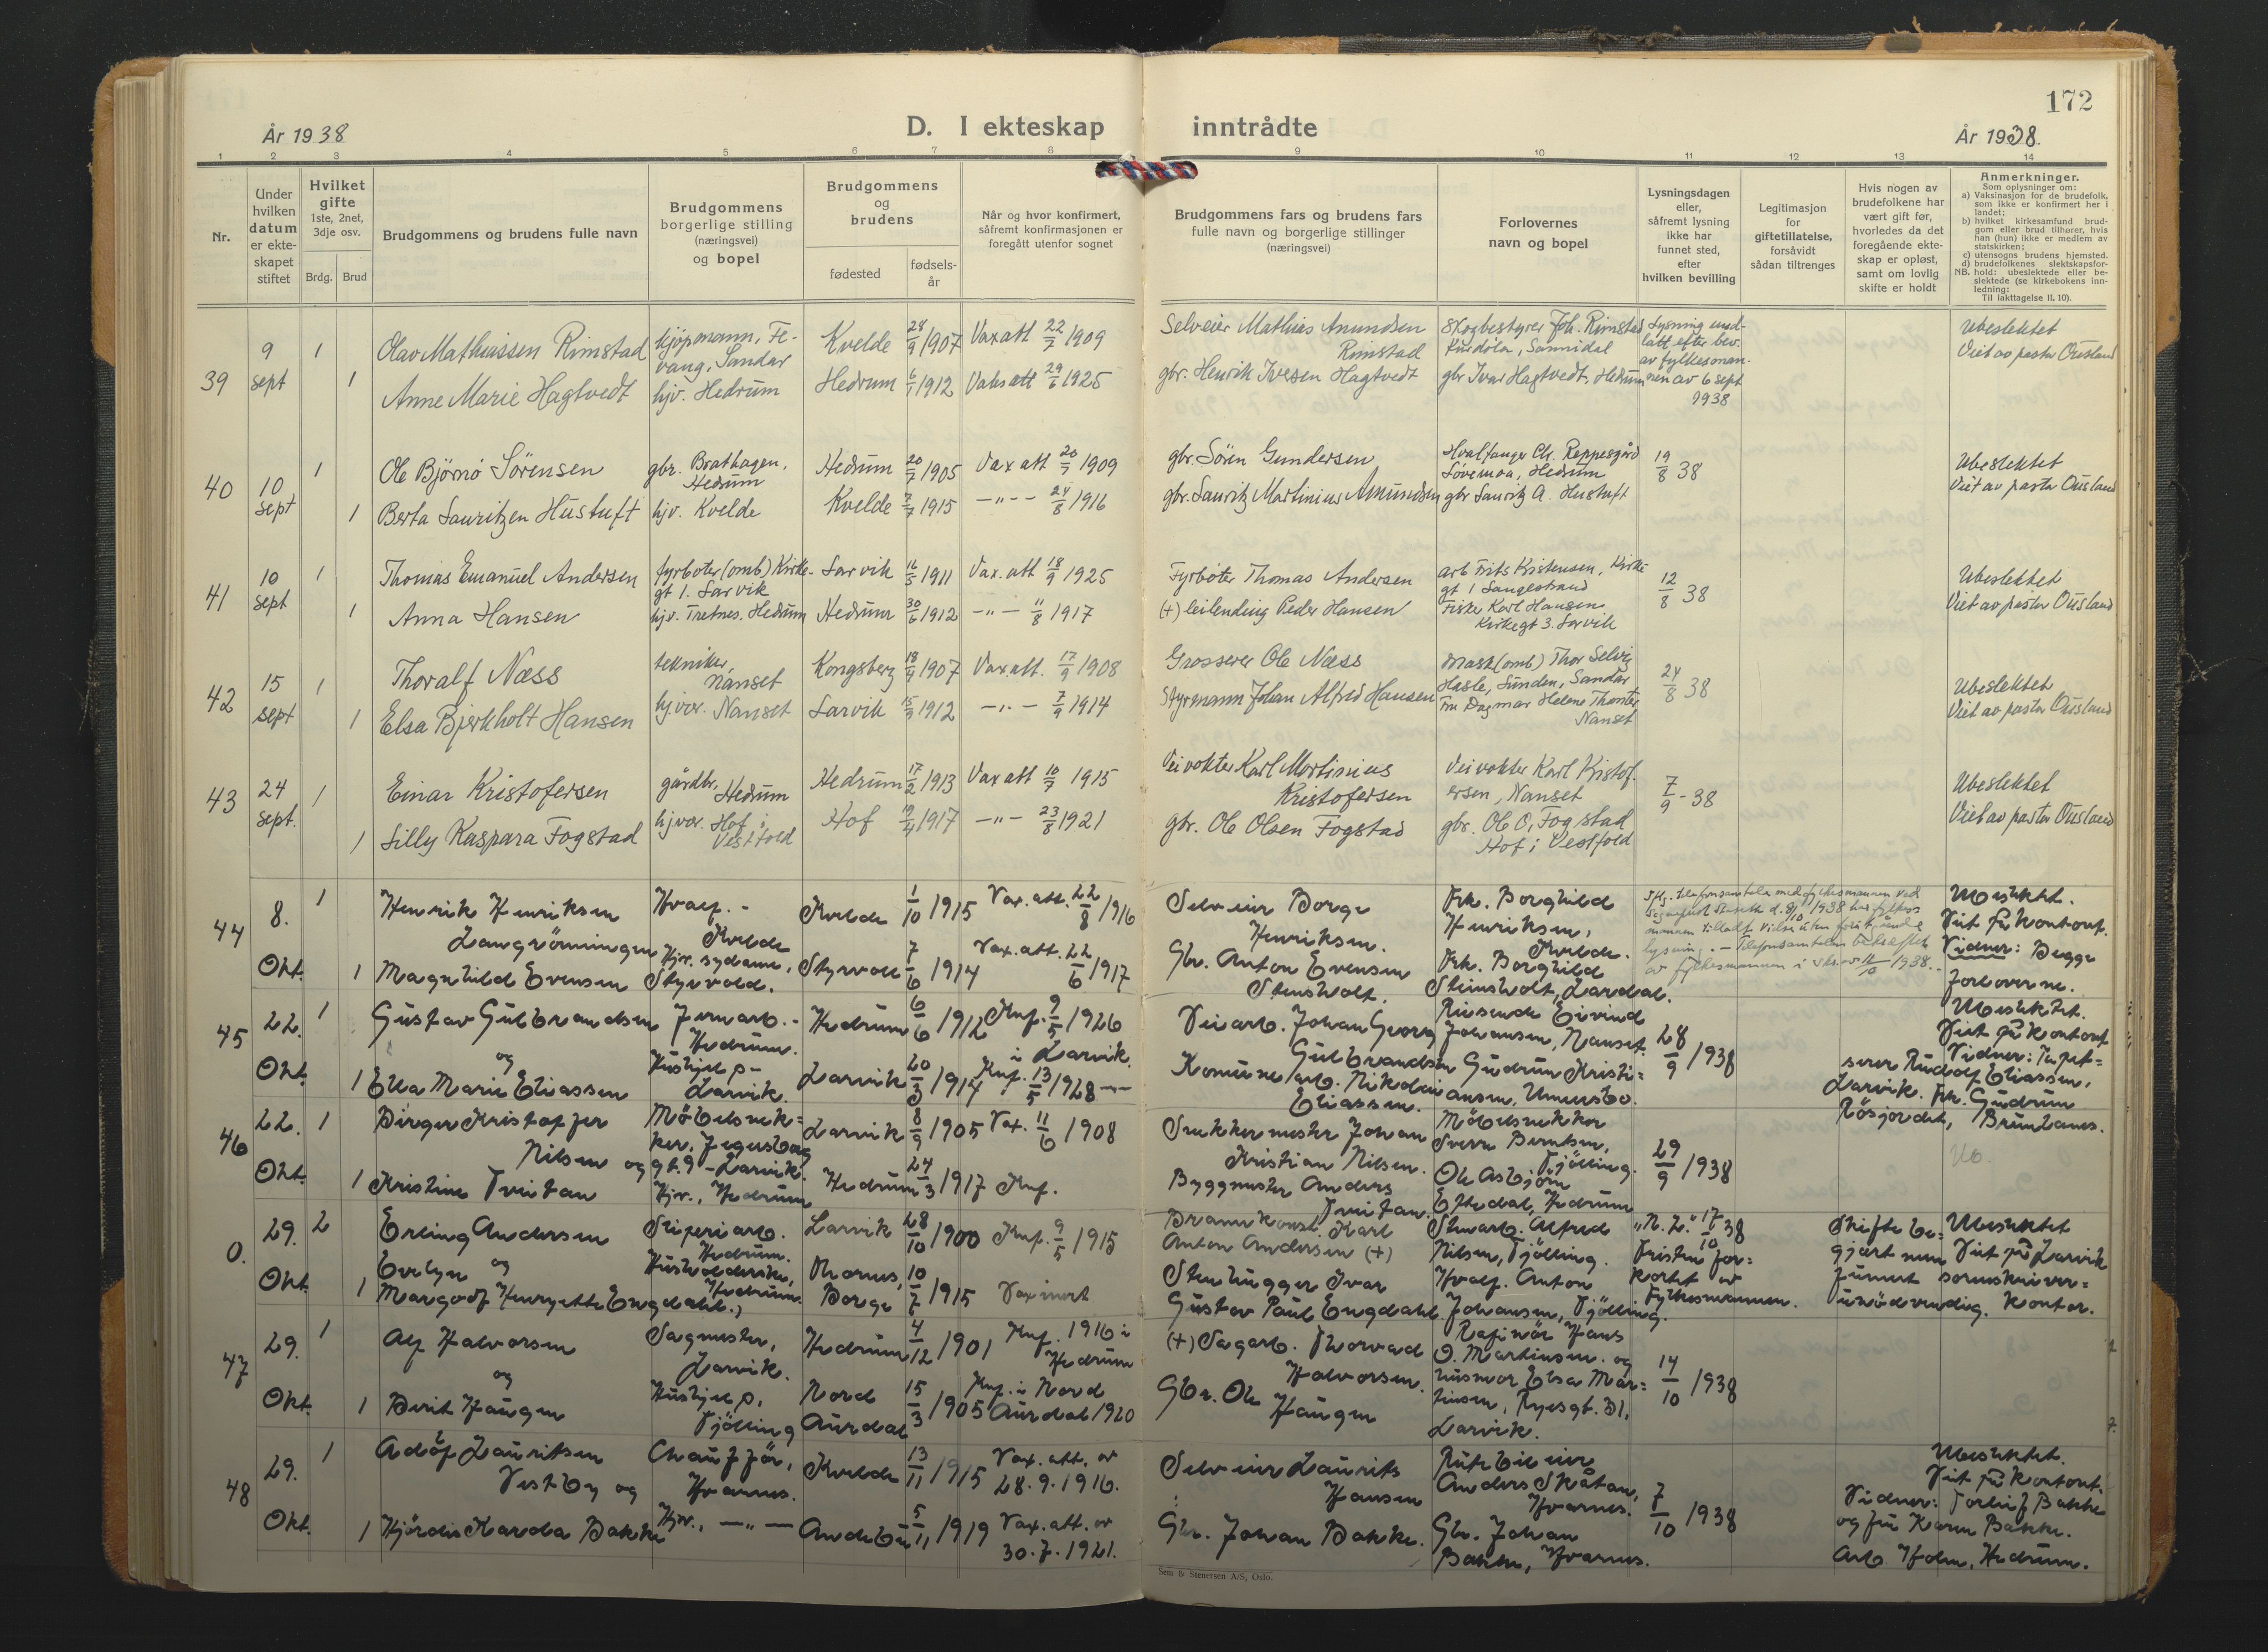 172
År 1938
D. I ekteskap inntrådte
År 1938.
1 2 3 4 5 6 7 8 9 10 11 12 13 14
Nr.
Under hvilken datum er ekteskapet stiftet
Hvilket gifte 1ste, 2net, 3dje osv.
Brdg. Brud
Brudgommens og brudens fulle navn
Brudgommens borgerlige stilling (næringsvei) og bopel
Brudgommens og brudens
fødested
fødsels-år
Når og hvor konfirmert, såfremt konfirmasjonen er foregått utenfor sognet
Brudgommens fars og brudens fars fulle navn og borgerlige stillinger (næringsvei)
Forlovernes navn og bopel
Lysningsdagen eller, såfremt lysning ikke har funnet sted, efter hvilken bevilling
Legitimasjon for giftetillatelse, forsåvidt sådan tiltrenges
Hvis nogen av brudefolkene har vært gift før, hvorledes da det foregående ekteskap er opløst, samt om lovlig skifte er holdt
Anmerkninger.
Som oplysninger om:
a) Vaksinasjon for de brudefolk, som ikke er konfirmert her i landet;
b) hvilket kirkesamfund brudgom eller brud tilhører, hvis han (hun) ikke er medlem av statskirken;
c) utensogns brudens hjemsted.
d) brudefolkenes slektskapsforhold: ubeslektede eller beslektede (se kirkebokens innledning:
NB.
Til iakttagelse II. 10).
39
9 sept
1
Olav Mathiassen Rimstad
kjøpmann, Fevang, Sandar
Kvelde 28/9 1907 Vax att 22/7 1909
Selveier Mathies Amundsen Rimstad
Skogbestyrer Joh. Rimstad
Sannidal
Lysning undlatt, efter bev. av fylkesmannen av 6 sept 1938
Ubeslektet
Viet av pastor Ousland
1
Anne Marie Hagtvedt
hjv. Hedrum
Hedrum 6/1 1912 Vaks att 29/6 1925
gbr. Henrik Ivesen Hagtvedt
gbr Ivar Hagtvedt, Hedrum
40
10 sept
1
Ole Bjørnö Sörensen
gbr. Brathagen, Hedrum
Hedrum 20/7 1905 Vax att 20/7 1909
gbr. Sören Gundersen
Hvalfanger Ch. Reppesgård
Hedrum
19/8 38
Ubeslektet
Viet av pastor Ousland
1
Berta Lauritzen Hustuft
hjv. Kvelde
Kvelde 7/7 1915 —"-- 24/8 1916
gbr. Lauritz Martinius Amundsen
gbr Lauritz A. Hustuft
41
10 sept
1
Thomas Emanuel Andersen
fyrböter (omb) Kirkegt 1. Larvik
Larvik 16/5 1911 Vax. att 18/9 1925
Fyrböter Thomas Andersen
arb Frits Kristensen, Kirkegt 1 Langestrand
12/8 38
Ubeslektet
Viet av pastor Ousland
1
Anna Hansen
hjv. Tretnes, Hedrum
Hedrum 30/6 1912 —"— 11/8 1917
(+) leilending Peder Hansen
Fisker Karl Hansen
Kirkegt 3. Larvik
42
15 sept
1
Thoralf Næss
tekniker, Nanset
Kongsberg 18/9 1907 Vax att. 17/9 1908
Grosserer Ole Næss
Mask (omb) Thor Selvig
Hasle, Sunden, Sandar
24/8 38
Ubeslektet
Viet av pastor Ousland
1
Elsa Bjerkholt Hansen
hjvær. Nanset
Larvik 15/9 1912 —"— 7/9 1914
Styrmann Johan Alfred Hansen
Fru Dagmar Helene
Nanset
43
24 sept.
1
Einar Kristofersen
gårdbr. Hedrum
Hedrum 17/2 1913 Vax att 10/7 1915
Veivokter Karl Martinius Kristofersen
Veivokter Karl Kristofersen, Nanset
7/9 - 38
Ubeslektet
Viet av pastor Ousland
1
Lilly Kaspara Fogstad
hjvær. Hof i Vestfold
Hof 19/4 1917 —"— 23/8 1921
gbr. Ole Olsen Fogstad
gbr. Ole O. Fogstad
Hof i Vestfold
44
8. Okt.
1
Henrik Henriksen Langrönningen
Hvalf. - Kvelde
Kvelde 1/10 1915 Vax. att. 22/8 1916
Selveier Borge Henriksen.
Frk. Borghild Henriksen, Kvelde.
Ubeslektet.
Viet på kontoret.
Vidner: Begge forloverne.
1
Magnhild Evensen
Hjv. sydame, Styrvold.
Styrvoll 7/6 1914 Vax. att. 22/6 1917
Gbr. Anton Evensen Stensholt.
Frk. Borghild Steinsholt, Lardal.
45
22. Okt.
1
Gustav Gulbrandsen og
Jernarb. - Hedrum.
Hedrum 6/6 1912 Knf. 9/5 1926 i Larvik.
Veiarb. Johan Georg Gulbrandsen
Reisende Eivind Johansen, Nanset.
28/9 1938
Ubeslektet.
Viet på kontoret
Vidner:
Rudolf Eliassen, Larvik. Frk. Gudrun
Rösjordet, Brunlanes.
1
Ella Marie Eliassen
Hushjelp - Larvik.
Larvik 20/3 1914 Knf. 13/5 1928 —"—
Komunearb. Nikolai Eliassen.
Gudrun Kristiansen,
46
22. Okt.
1
Birger Kristoffer Nilsen og
Möbelsnekker, Jegersborggt. 9 - Larvik.
Larvik 8/9 1905 Vax. 11/6 1908
Snekkermester Johan Kristian Nilsen.
Möbelsnekker Sverre Berntsen, Tjölling.
29/9 1938
Ub.
1
Kristine Tveitan
Hjv., Hedrum
Hedrum 24/3 1917 Knf.
Byggmester Anders Tveitan.
Ole Asbjörn Eftedal, Hedrum
0.
29. Okt.
2
Erling Andersen og
Sliperiarb. Hedrum.
Larvik 28/10 1900 Knf. 9/5 1915
Karl Anton Andersen (+)
Stenarb. Alfred Nilsen, Tjölling.
"N. L." 17/10 38
Fristen forkortet av Fylkesmannen.
Skifte begjært men funnet unödvendig.
Ubeslektet
Viet på Larvik sorenskriverkontor.
1
Evelyn Margodt Henryette Engdahl.,
Husholderske, Hedrum.
Borge 10/7 1915
Stenhugger Ivar Gustav Paul Engdahl.
Hvalf. Anton Johansen, Tjölling.
47
29. Okt.
1
Alf Halvorsen og
Sagmester, Larvik.
Hedrum 4/12 1901 Knf. 1916 i Hedrum
(+) Sagarb. Thorvad Halvorsen.
Rafinör Hans O. Martinsen. og
14/10 1938
1
Berit Haugen
Hushjelp, Tjölling
Nord Aurdal 15/3 1905 Knf. i Nord Aurdal 1920
Gbr. Ole Haugen
husmor Elsa Martinsen, Ryesgt. 31, Larvik.
48
29. Okt.
1
Adolf Lauritsen Vestby og
Chaufför, Hvarnes.
Kvelde 13/11 1915 Vax. att. av 28.9.1916.
Selveier Laurits Hansen
Rutebileier Anders Skåtan, Hvarnes.
7/10 1938
Ubeslektet.
Viet på kontoret.
Vidner: Torleif Bakke og fru Karen Bakke.
Arb Holm, Hedrum.
1
Hjördis Harda Bakke
Hjv., —"—
Andebu 5/11 1919 Vax. att. av 30.7.1921.
Gbr. Johan Bakke.
Gbr. Johan Bakke, Hvarnes.
Sem & Stenersen A/S, Oslo.